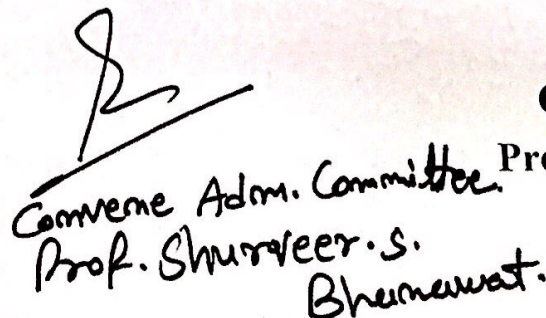 Convene Adm. Committee.
Pro
Prof. Shurveer.s.
Bhanawat.